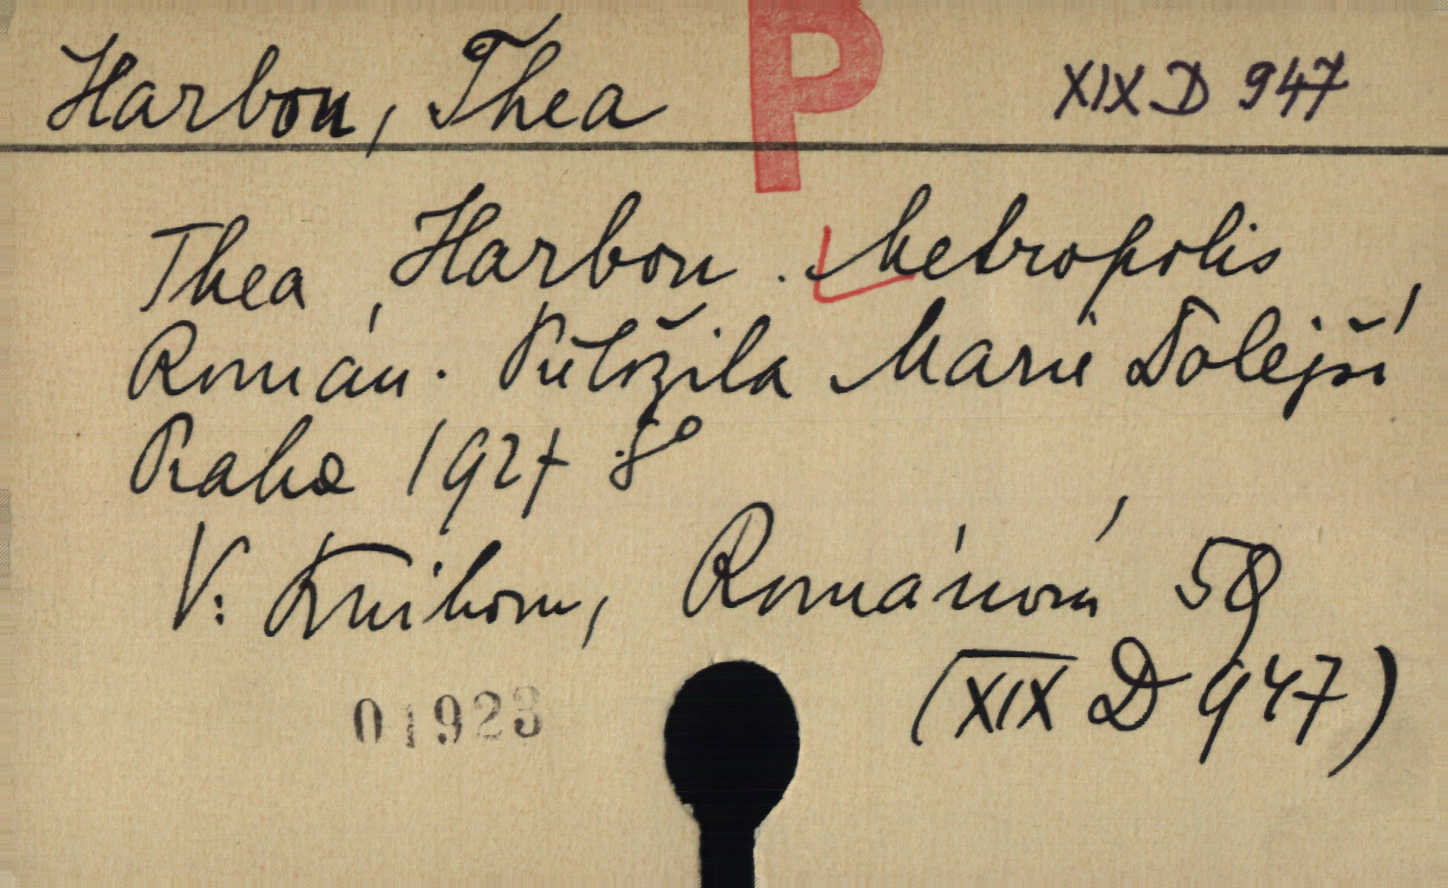 P
Harbou, Thea XIX D 947
Thea Harbou. Metropolis
Román. Přeložila Marie Dolejší
Praha 1927 8°
V: Knihovn, Románová 58
(XIX D 947)
01923